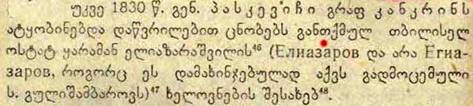 უკვე 1830 წ. გენ. პასკევიჩი გრაფ კანკრინს
ატყობინებდა დაწვრილებით ცნობებს განთქმულ თბილისელ
ოსტატ ყარამან ელიაზარაშვილის⁴⁶ (Елиазаров და არა Егиа-
заров, როგორც ეს დამახინჯებულად აქვს გადმოცემული
ს. გულიშამბაროვს)⁴⁷ ხელოვნების შესახებ⁴⁸.